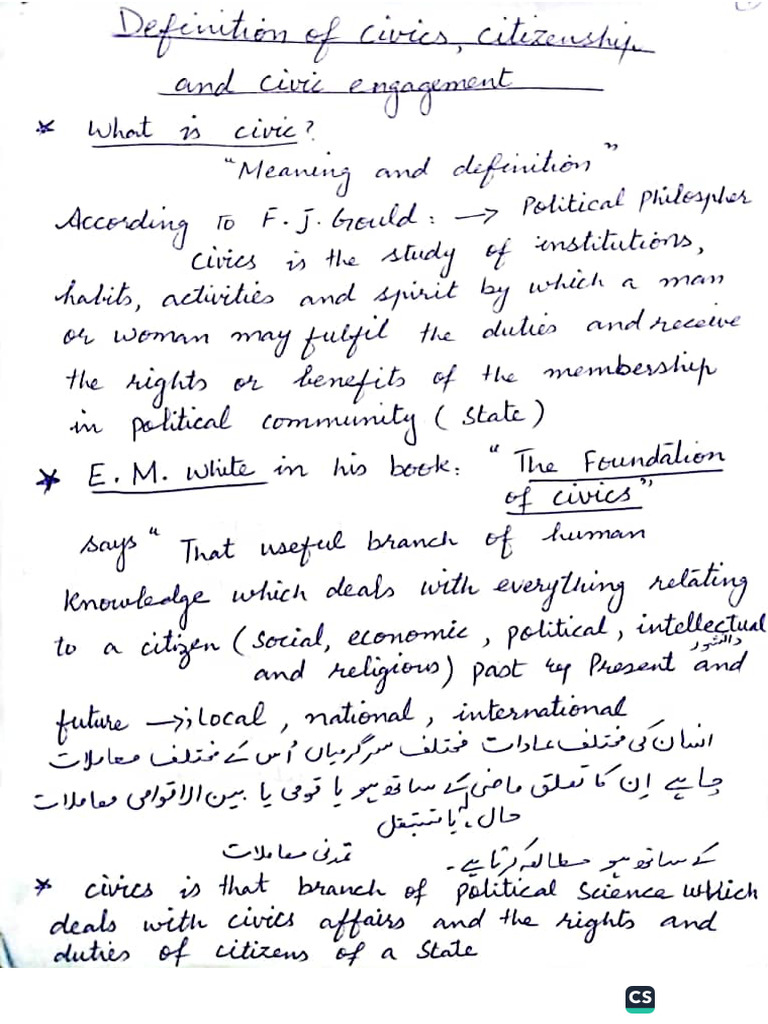 Definition of civics, citizenship
and civic engagement
* What is civic?
"Meaning and definition"
According To F. J. Gould: → Political Philospher
civics is the study of institutions,
habits, activities and spirit by which a man
or woman may fulfil the duties and receive
the rights or benefits of the membership
in political community (State)
* E. M. White in his book: "The Foundation
of civics"
says "That useful branch of human
Knowledge which deals with everything relating
to a citizen (Social, economic, political, intellectual
دانشور
and religious) past Present and
future → Local, national, international
انسان کی مختلف عادات مختلف سرگرمیاں اُس کے مختلف معاملات
چاہے اِن کا تعلق ماضی کے ساتھ ہو یا قومی یا بین الاقوامی معاملات
حال، یا مستقبل
کے ساتھ ہو مطالعہ کرتا ہے۔ تمدنی معاملات
* civics is that branch of Political Science which
deals with civics affairs and the rights and
duties of citizens of a State
CS